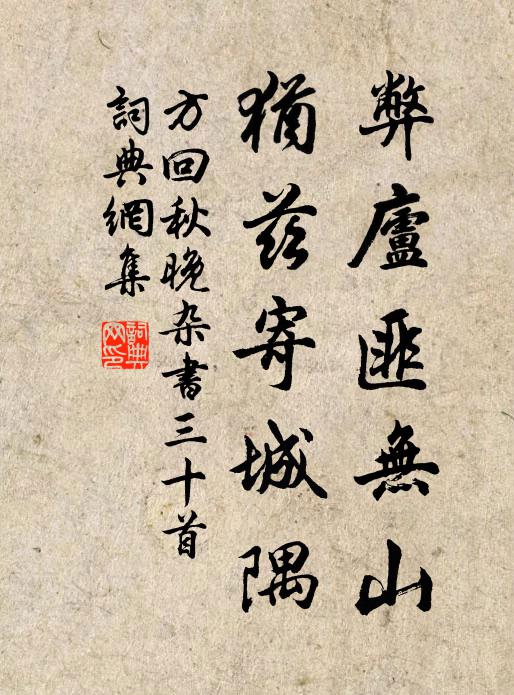 弊廬匪無山
猶茲寄城隅
方回秋晚杂書三十首
詞典網集
詞典网印